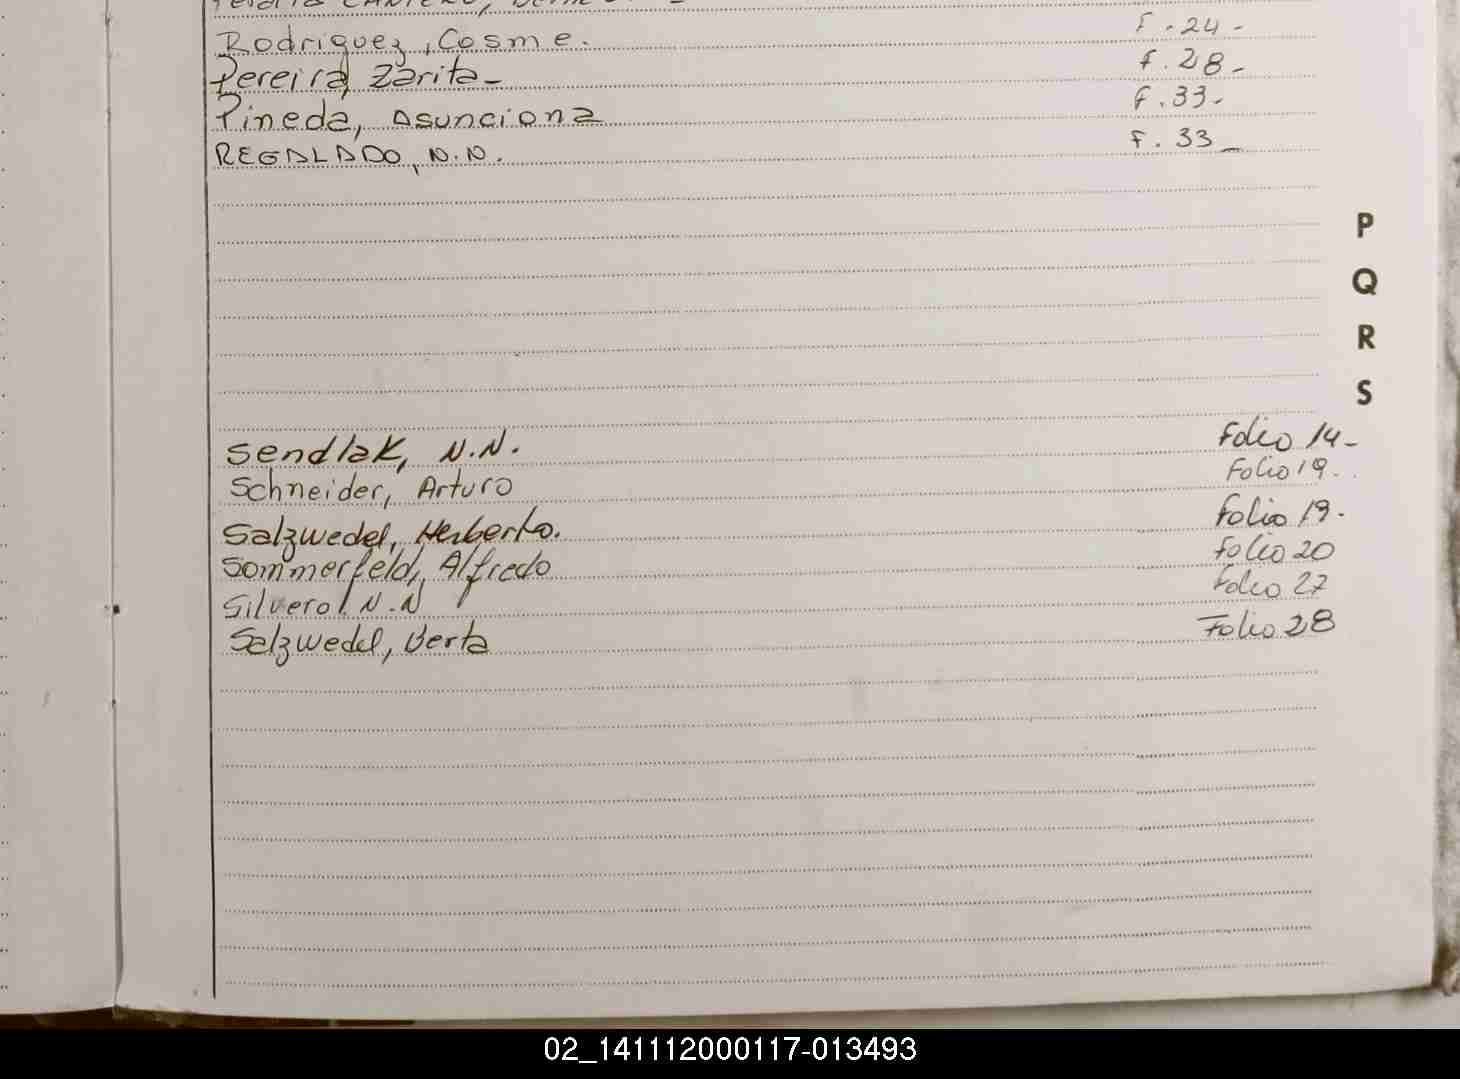 Rodriguez, Cosme. F. 24 -
Pereira, Zarita - F. 28 -
Pineda, Asunciona F. 33 -
REGALADO, N.N. F. 33 _
P
Q
R
S
Sendlak, N.N. Folio 14 -
Schneider, Arturo Folio 19 -
Salzwedel, Herberto. Folio 19 -
Sommerfeld, Alfredo Folio 20
Silvero, N.N Folio 27
Salzwedel, Berta Folio 28
02_141112000117-013493